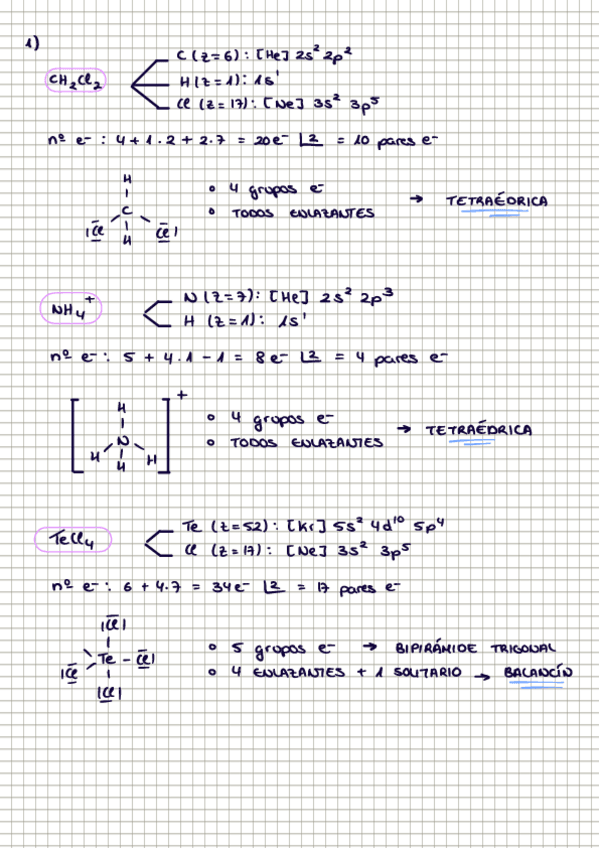 1)
CH₂Cl₂
C (z=6): [He] 2s² 2p²
H (z=1): 1s¹
Cl (z=17): [Ne] 3s² 3p⁵
nº e⁻: 4 + 1·2 + 2·7 = 20e⁻ |2 = 10 pares e⁻
H
C
Cl Cl
H
• 4 grupos e⁻
• TODOS ENLAZANTES
→ TETRAÉDRICA
NH₄⁺
N (z=7): [He] 2s² 2p³
H (z=1): 1s¹
nº e⁻: 5 + 4·1 - 1 = 8e⁻ |2 = 4 pares e⁻
[ ]⁺
H
N
H H H
• 4 grupos e⁻
• TODOS ENLAZANTES
→ TETRAÉDRICA
TeCl₄
Te (z=52): [Kr] 5s² 4d¹⁰ 5p⁴
Cl (z=17): [Ne] 3s² 3p⁵
nº e⁻: 6 + 4·7 = 34e⁻ |2 = 17 pares e⁻
Cl
Te - Cl
Cl
Cl
• 5 grupos e⁻ → BIPIRÁMIDE TRIGONAL
• 4 ENLAZANTES + 1 SOLITARIO → BALANCÍN